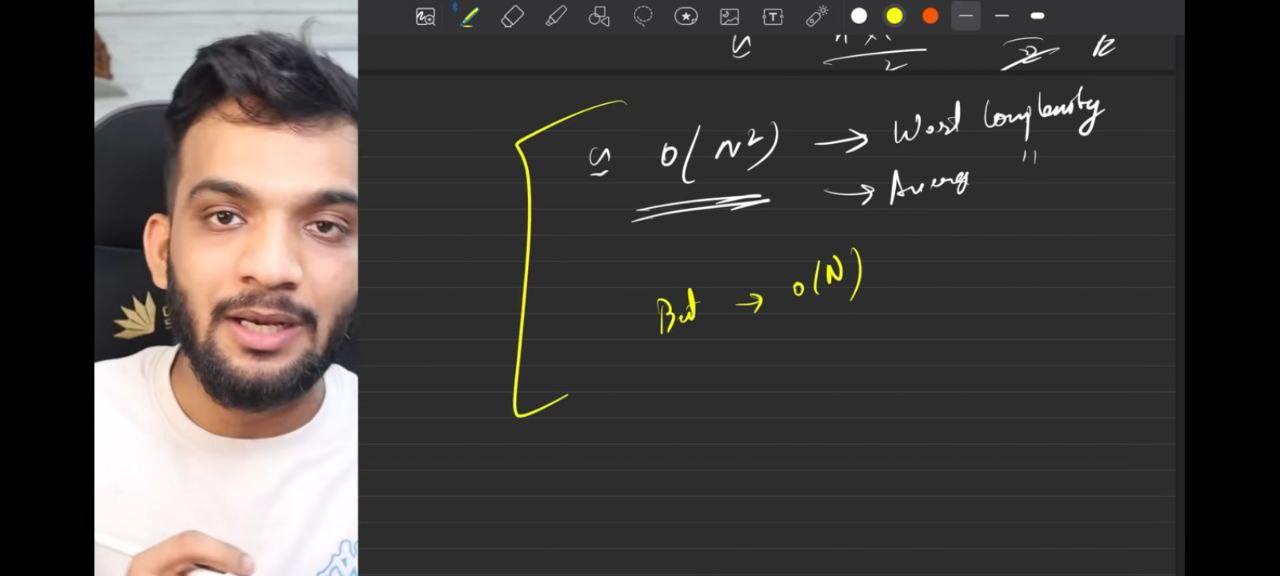 2
≈ O(N²) → Worst Complexity
→ Average "
Best → O(N)